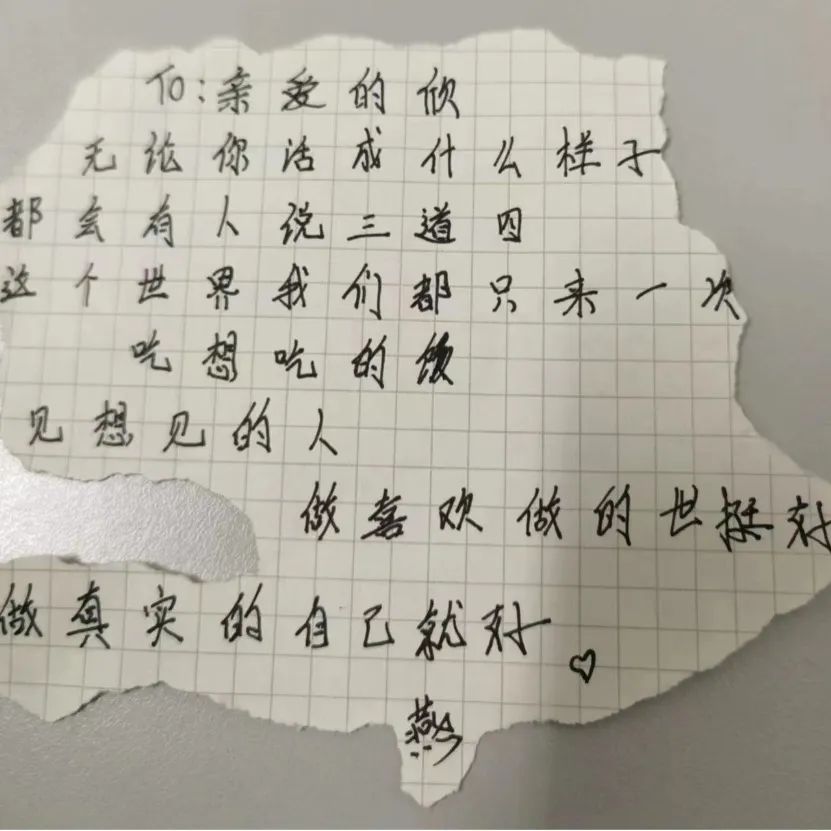 To:亲爱的欣
无论你活成什么样子
都会有人说三道四
这个世界我们都只来一次
吃想吃的饭
见想见的人
做喜欢做的世挺好
做真实的自己就好
燕